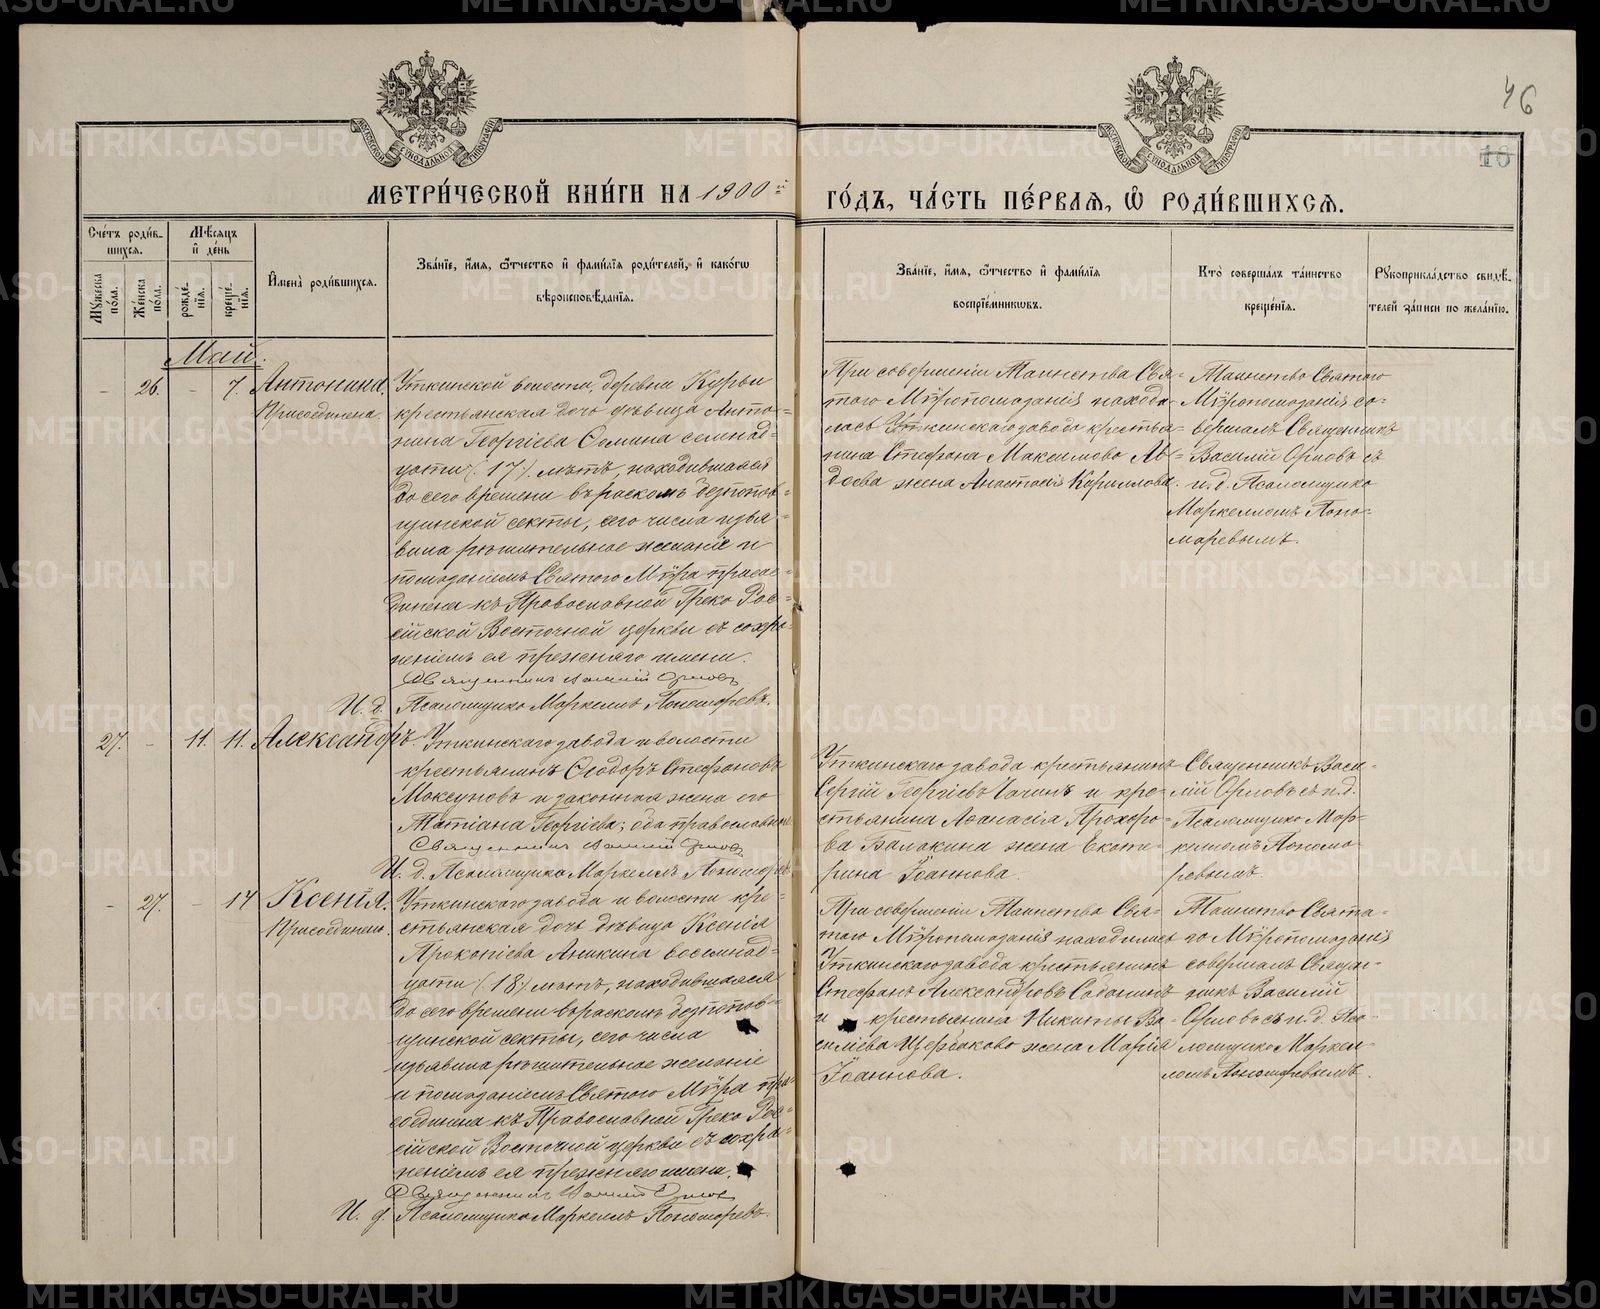 46
10
МОСКОВСКОЙ СѴНОДАЛЬНОЙ ТИПОГРАФІИ
МОСКОВСКОЙ СѴНОДАЛЬНОЙ ТИПОГРАФІИ
МЕТРИ́ЧЕСКОЙ КНИ́ГИ НА 1900й
ГО́ДЪ, ЧА́СТЬ ПЕ́РВАѦ, Ѽ РОДИ́ВШИХСѦ.
Сче́тъ роди́в-
шихсѧ.
Му́жеска по́ла.
Же́нска по́ла.
Мѣ́сѧцъ
и҆ де́нь
рожде́-
нїѧ.
креще́-
нїѧ.
И҆мена̀ роди́вшихсѧ.
Зва́нїе, и҆́мѧ, ѻ҆́тчество и҆ фами́лїѧ роди́телей, и҆ како́гѡ
вѣроисповѣ́данїѧ.
Зва́нїе, и҆́мѧ, ѻ҆́тчество и҆ фами́лїѧ
воспрїе́мникѡвъ.
Кто̀ соверша́лъ та́инство
креще́нїѧ.
Рꙋкоприкла́дство свидѣ́-
телей за́писи по жела́нїю.
Май.
- 26. - 7. Антонина.
Присоединена.
Уткинской волости, деревни Курьи
крестьянская дочь дѣвица Анто-
нина Георгіева Сёмина семнад-
цати (17) лѣтъ, находившаяся
до сего времени въ расколѣ безпопов-
щинской секты, сего числа изъя-
вила рѣшительное желаніе и
помазаніемъ Святого Мѵра присое-
динена къ Православной Греко Рос-
сійской Восточной церкви съ сохра-
неніемъ ея прежняго имени.
Священникъ Василій Орловъ
И. д. Псаломщика Маркеллъ Пономаревъ.
При совершеніи Таинства Свя-
того Мѵропомазанія находи-
лась Уткинскаго завода крестья-
нина Стефана Максимова
жена Анастасія Кириллова.
Таинство Святого
Мѵропомазанія со-
вершалъ Священникъ
Василій Орловъ съ
и. д. Псаломщика
Маркелломъ Поно-
маревымъ.
27. - 11. 11. Александръ.
Уткинскаго завода и волости
крестьянинъ Ѳеодоръ Стефановъ
Моксуновъ и законная жена его
Татіана Георгіева; оба православные
Священникъ Василій Орловъ
И. д. Псаломщика Маркеллъ Пономаревъ
Уткинскаго завода крестьянинъ
Сергій Георгіевъ и кре-
стьянина Аѳанасія Прохоро-
ва Балакина жена Екате-
рина Іоаннова.
Священникъ Васи-
лій Орловъ съ и. д.
Псаломщика Мар-
келломъ Понома-
ревымъ.
- 27. - 14 Ксенія.
Присоединена.
Уткинскаго завода и волости кре-
стьянская дочь дѣвица Ксенія
Прокопіева Аникина восемнад-
цати (18) лѣтъ, находившаяся
до сего времени въ расколѣ безпопов-
щинской секты, сего числа
изъявила рѣшительное желаніе
и помазаніемъ Святого Мѵра при-
соединена къ Православной Греко Рос-
сійской Восточной церкви съ сохра-
неніемъ ея прежняго имени.
Священникъ Василій Орловъ
И. д. Псаломщика Маркеллъ Пономаревъ.
При совершеніи Таинства Свя-
того Мѵропомазанія находились
Уткинскаго завода крестьянинъ
Стефанъ Александровъ
и крестьянина Никиты Ва-
силіева Щербакова жена Марія
Іоаннова.
Таинство Свята-
го Мѵропомазанія
совершалъ Священ-
никъ Василій
Орловъ съ и. д. Пса-
ломщика Маркел-
ломъ Пономаревымъ.
METRIKI.GASO-URAL.RU